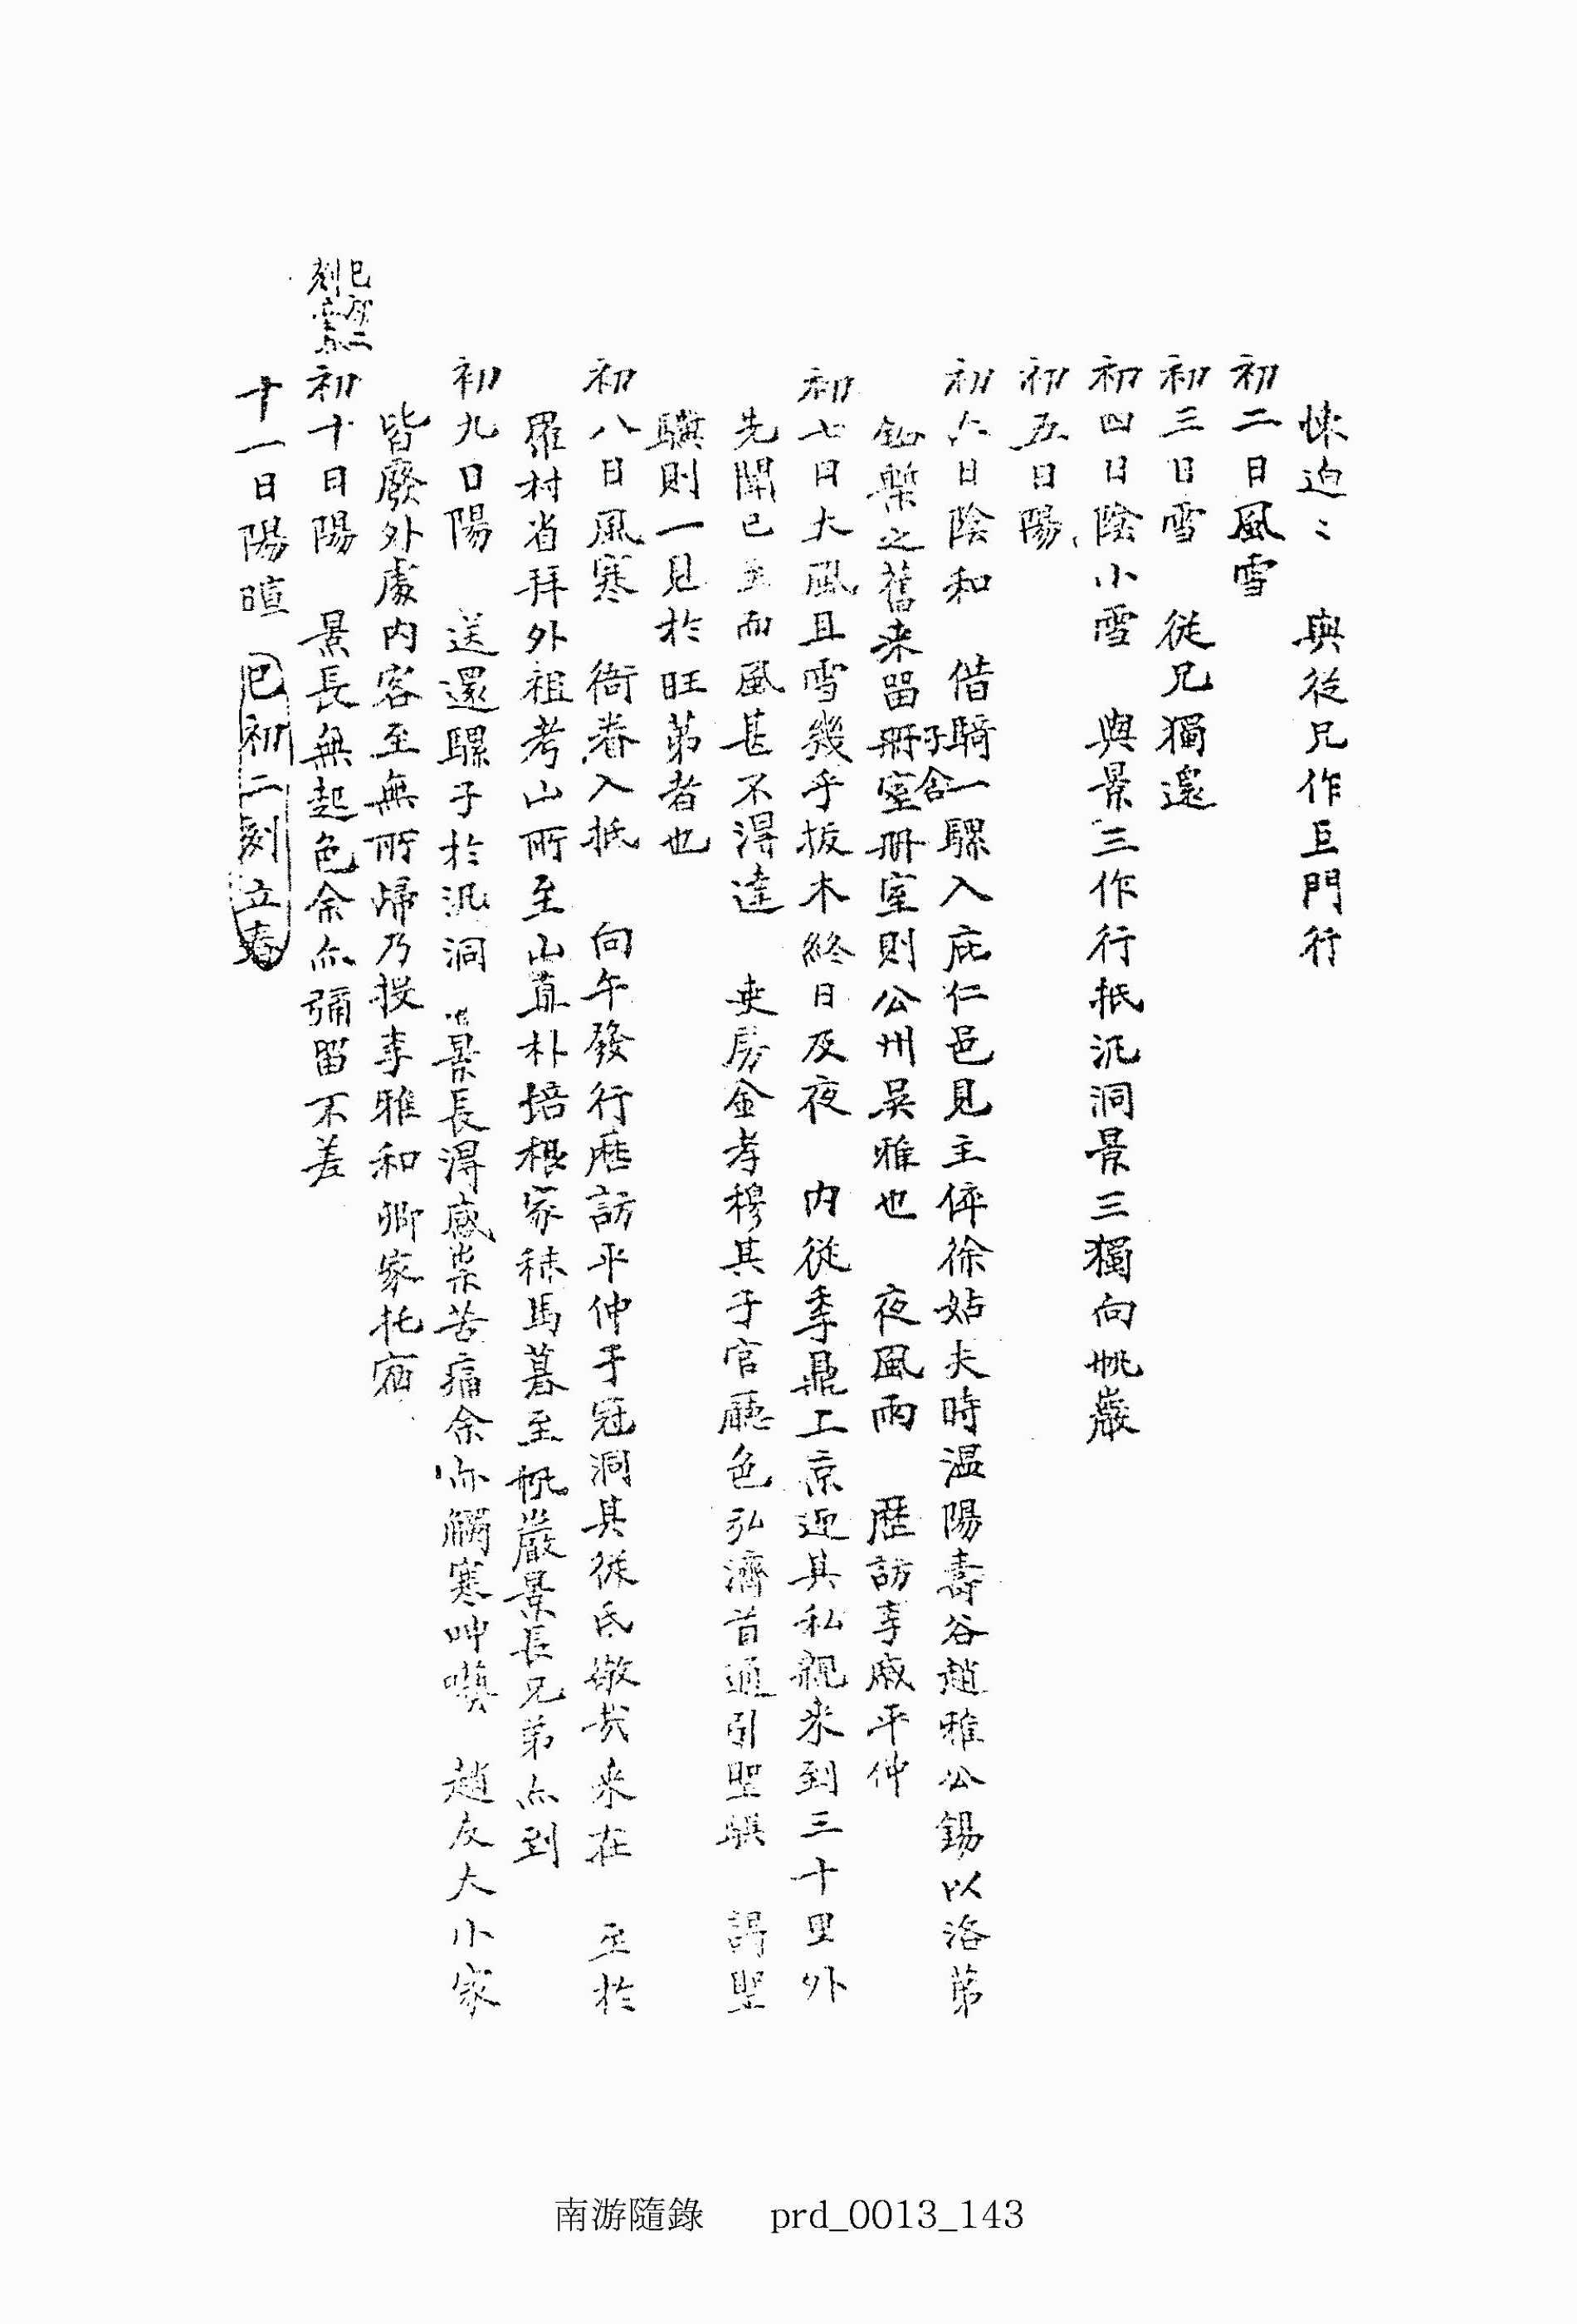 悚迫〻 與從兄作巨門行
初二日風雪
初三日雪 從兄獨還
初四日陰小雪 與景三作行抵汎洞景三獨向帆巖
初五日陽
初六日陰和 借騎一騾入庇仁邑見主倅徐姑夫時温陽壽谷趙雅公錫以洛第
子舍
鉛槧之舊来留册室册室則公州吳雅也 夜風雨 歷訪李戚平仲
初七日大風且雪幾乎拔木終日及夜 内從季鼎工京迎其私親来到三十里外
先聞已至而風甚不得達 吏房金孝穆其子官廳色弘濟首通引聖騏 謂聖
騏則一見於旺第者也
初八日風寒 衙眷入抵 向午發行歷訪平仲于冠洞其從氏敬哉来在 至於
羅村省拜外祖考山所至山直朴培根家秣馬暮至帆巖景長兄弟亦到
初九日陽 送還騾子於汎洞 景長得感祟苦痛余亦觸寒呻囈 趙友大小家
皆廢外處内客至無所歸乃投李雅和卿家托宿
巳初二
刻立春
初十日陽 景長無起色余亦彌留不差
十一日陽暄 巳初二刻立春
南游隨錄 prd_0013_143